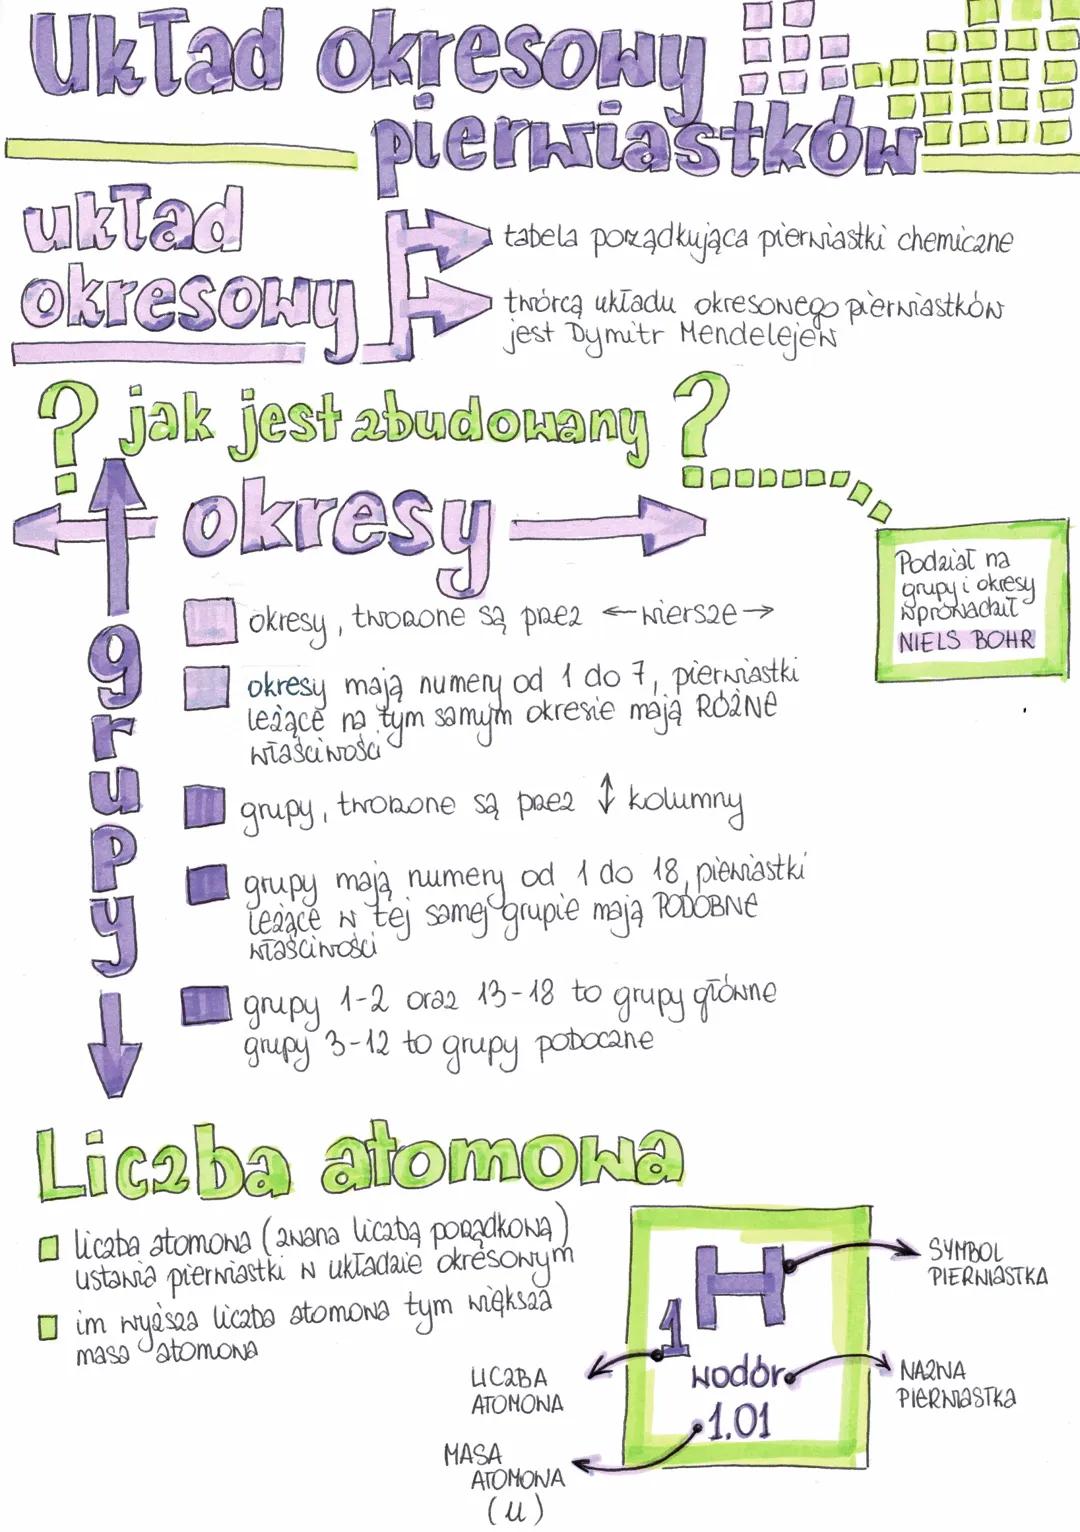 Układ okresowy
pierwiastków
układ
okresowy
tabela porządkująca pierwiastki chemiczne
twórcą układu okresowego pierwiastków
jest Dymitr Mendelejew
? jak jest zbudowany ?
okresy
grupy
Podział na
grupy i okresy
wprowadził
NIELS BOHR
okresy, tworzone są przez ← wiersze →
okresy mają numery od 1 do 7, pierwiastki
leżące na tym samym okresie mają RÓŻNE
właściwości
grupy, tworzone są przez ↕ kolumny
grupy mają numery od 1 do 18, pierwiastki
leżące w tej samej grupie mają PODOBNE
właściwości
grupy 1-2 oraz 13-18 to grupy główne
grupy 3-12 to grupy poboczne
Liczba atomowa
liczba atomowa (zwana liczbą porządkową)
ustawia pierwiastki w układzie okresowym
im wyższa liczba atomowa tym większa
masa atomowa
H
SYMBOL
PIERWIASTKA
1
LICZBA
ATOMOWA
wodór
NAZWA
PIERWIASTKA
1.01
MASA
ATOMOWA
(u)